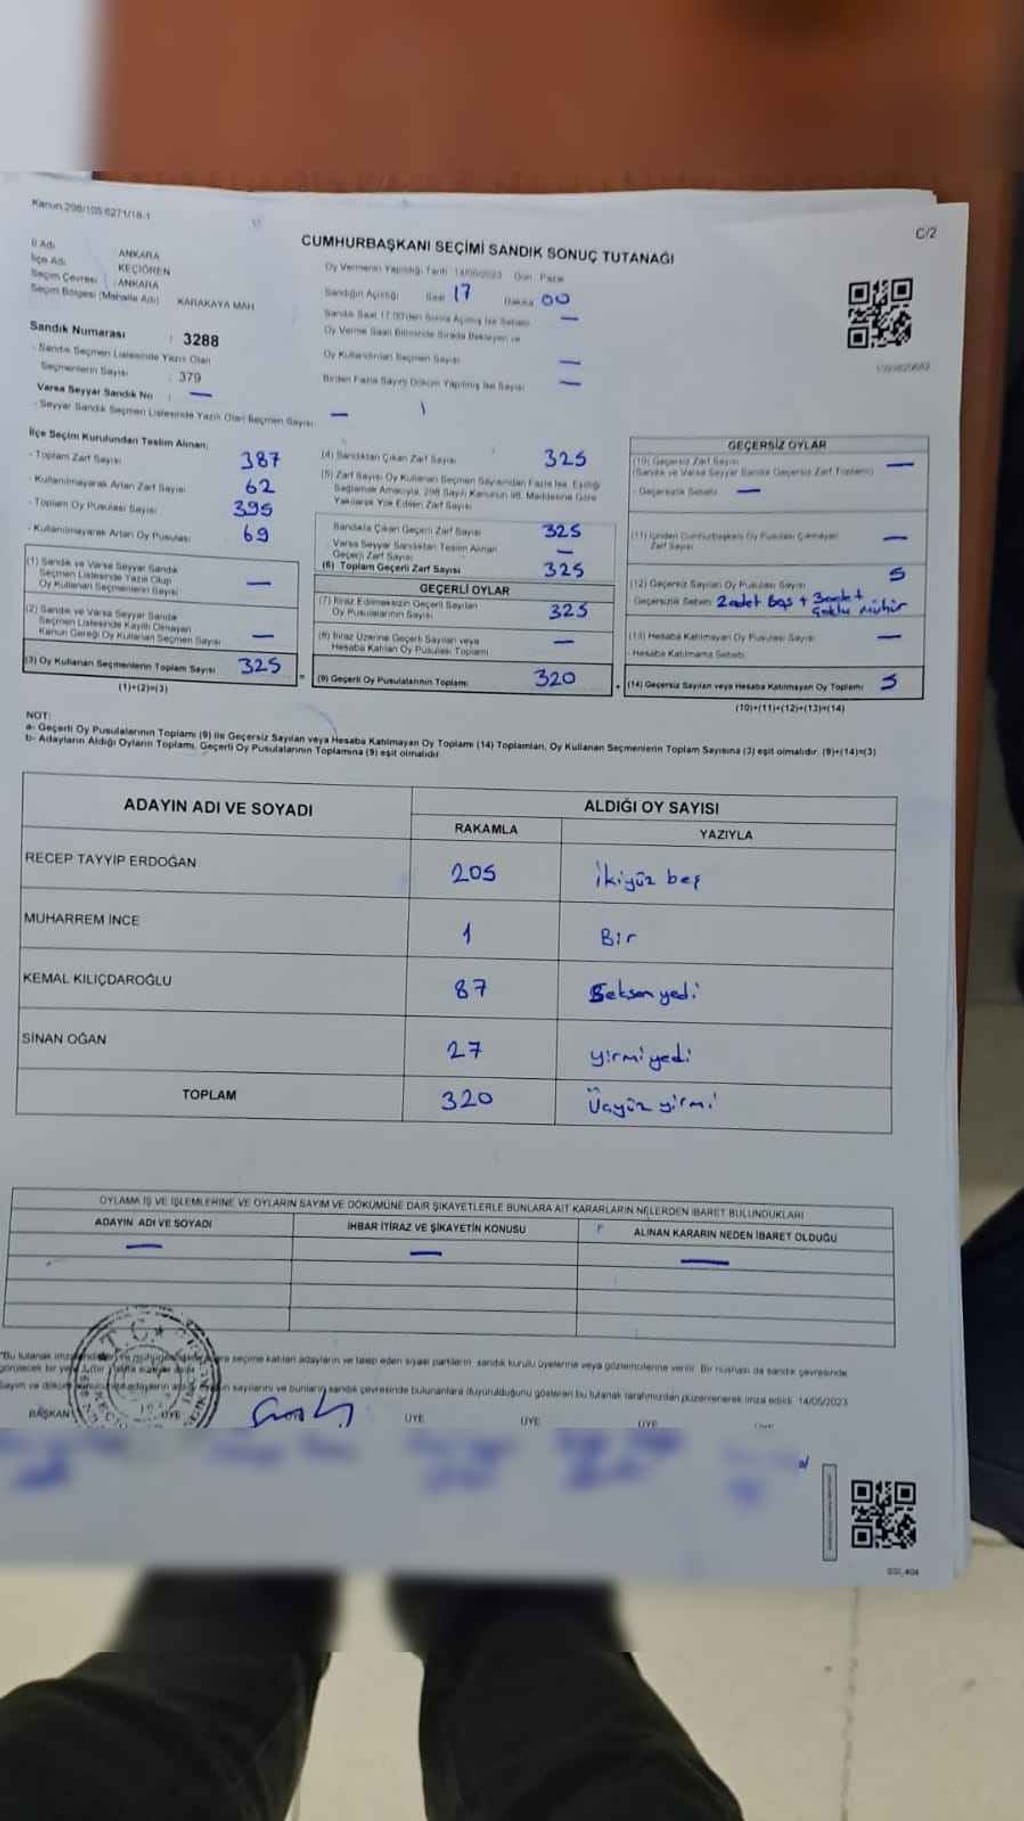 Kanun 298/105 6271/18-1
C/2
CUMHURBAŞKANI SEÇİMİ SANDIK SONUÇ TUTANAĞI
İl Adı ANKARA
İlçe Adı KEÇİÖREN
Seçim Çevresi ANKARA
Seçim Bölgesi (Mahalle Adı) KARAKAYA MAH
Sandık Numarası : 3288
- Sandık Seçmen Listesinde Yazılı Olan
Seçmenlerin Sayısı : 379
Varsa Seyyar Sandık No : —
- Seyyar Sandık Seçmen Listesinde Yazılı Olan Seçmen Sayısı —
Oy Vermenin Yapıldığı Tarih 14/05/2023 Gün Pazar
Sandığın Açıldığı Saat 17 Dakika 00
Sandık Saat 17.00'den Sonra Açılmış İse Sebebi —
Oy Verme Saati Bitiminde Sırada Bekleyen ve
Oy Kullandırılan Seçmen Sayısı —
Birden Fazla Sayım Döküm Yapılmış İse Sayısı —
İlçe Seçim Kurulundan Teslim Alınan;
- Toplam Zarf Sayısı 387
- Kullanılmayarak Artan Zarf Sayısı 62
- Toplam Oy Pusulası Sayısı 395
- Kullanılmayarak Artan Oy Pusulası 69
(1) Sandık ve Varsa Seyyar Sandık
Seçmen Listesinde Yazılı Olup
Oy Kullanan Seçmenlerin Sayısı —
(2) Sandık ve Varsa Seyyar Sandık
Seçmen Listesinde Kayıtlı Olmayan
Kanun Gereği Oy Kullanan Seçmen Sayısı —
(3) Oy Kullanan Seçmenlerin Toplam Sayısı 325
(1)+(2)=(3)
(4) Sandıktan Çıkan Zarf Sayısı 325
(5) Zarf Sayısı Oy Kullanan Seçmen Sayısından Fazla İse, Eşitliği
Sağlamak Amacıyla, 298 Sayılı Kanunun 98. Maddesine Göre
Yakılarak Yok Edilen Zarf Sayısı
Sandıkta Çıkan Geçerli Zarf Sayısı 325
Varsa Seyyar Sandıktan Teslim Alınan
Geçerli Zarf Sayısı —
(6) Toplam Geçerli Zarf Sayısı 325
GEÇERLİ OYLAR
(7) İtiraz Edilmeksizin Geçerli Sayılan
Oy Pusulalarının Sayısı 325
(8) İtiraz Üzerine Geçerli Sayılan veya
Hesaba Katılan Oy Pusulası Toplamı —
(9) Geçerli Oy Pusulalarının Toplamı 320
GEÇERSİZ OYLAR
(10) Geçersiz Zarf Sayısı —
(Sandık ve Varsa Seyyar Sandık Geçersiz Zarf Toplamı)
- Geçersizlik Sebebi —
(11) İçinden Cumhurbaşkanı Oy Pusulası Çıkmayan
Zarf Sayısı —
(12) Geçersiz Sayılan Oy Pusulası Sayısı 5
Geçersizlik Sebebi 2 adet boş + 3 adet çoklu mühür
(13) Hesaba Katılmayan Oy Pusulası Sayısı —
- Hesaba Katılmama Sebebi
(14) Geçersiz Sayılan veya Hesaba Katılmayan Oy Toplamı 5
(10)+(11)+(12)+(13)=(14)
NOT:
a- Geçerli Oy Pusulalarının Toplamı (9) ile Geçersiz Sayılan veya Hesaba Katılmayan Oy Toplamı (14) Toplamları, Oy Kullanan Seçmenlerin Toplam Sayısına (3) eşit olmalıdır. (9)+(14)=(3)
b- Adayların Aldığı Oyların Toplamı, Geçerli Oy Pusulalarının Toplamına (9) eşit olmalıdır.
ADAYIN ADI VE SOYADI ALDIĞI OY SAYISI
RAKAMLA YAZIYLA
RECEP TAYYİP ERDOĞAN 205 İkiyüz beş
MUHARREM İNCE 1 Bir
KEMAL KILIÇDAROĞLU 87 Seksen yedi
SİNAN OĞAN 27 yirmi yedi
TOPLAM 320 Üçyüz yirmi
OYLAMA İŞ VE İŞLEMLERİNE VE OYLARIN SAYIM VE DÖKÜMÜNE DAİR ŞİKAYETLERLE BUNLARA AİT KARARLARIN NELERDEN İBARET BULUNDUKLARI
ADAYIN ADI VE SOYADI İHBAR İTİRAZ VE ŞİKAYETİN KONUSU ALINAN KARARIN NEDEN İBARET OLDUĞU
— — —
seçime katılan adayların ve talep eden siyasi partilerin sandık kurulu üyelerine veya gözlemcilerine verilir. Bir nushası da sandık çevresinde
sayılarını ve bunların sandık çevresinde bulunanlara duyurulduğunu gösteren bu tutanak tarafımızdan düzenlenerek imza edildi. 14/05/2023
BAŞKAN ÜYE ÜYE ÜYE ÜYE